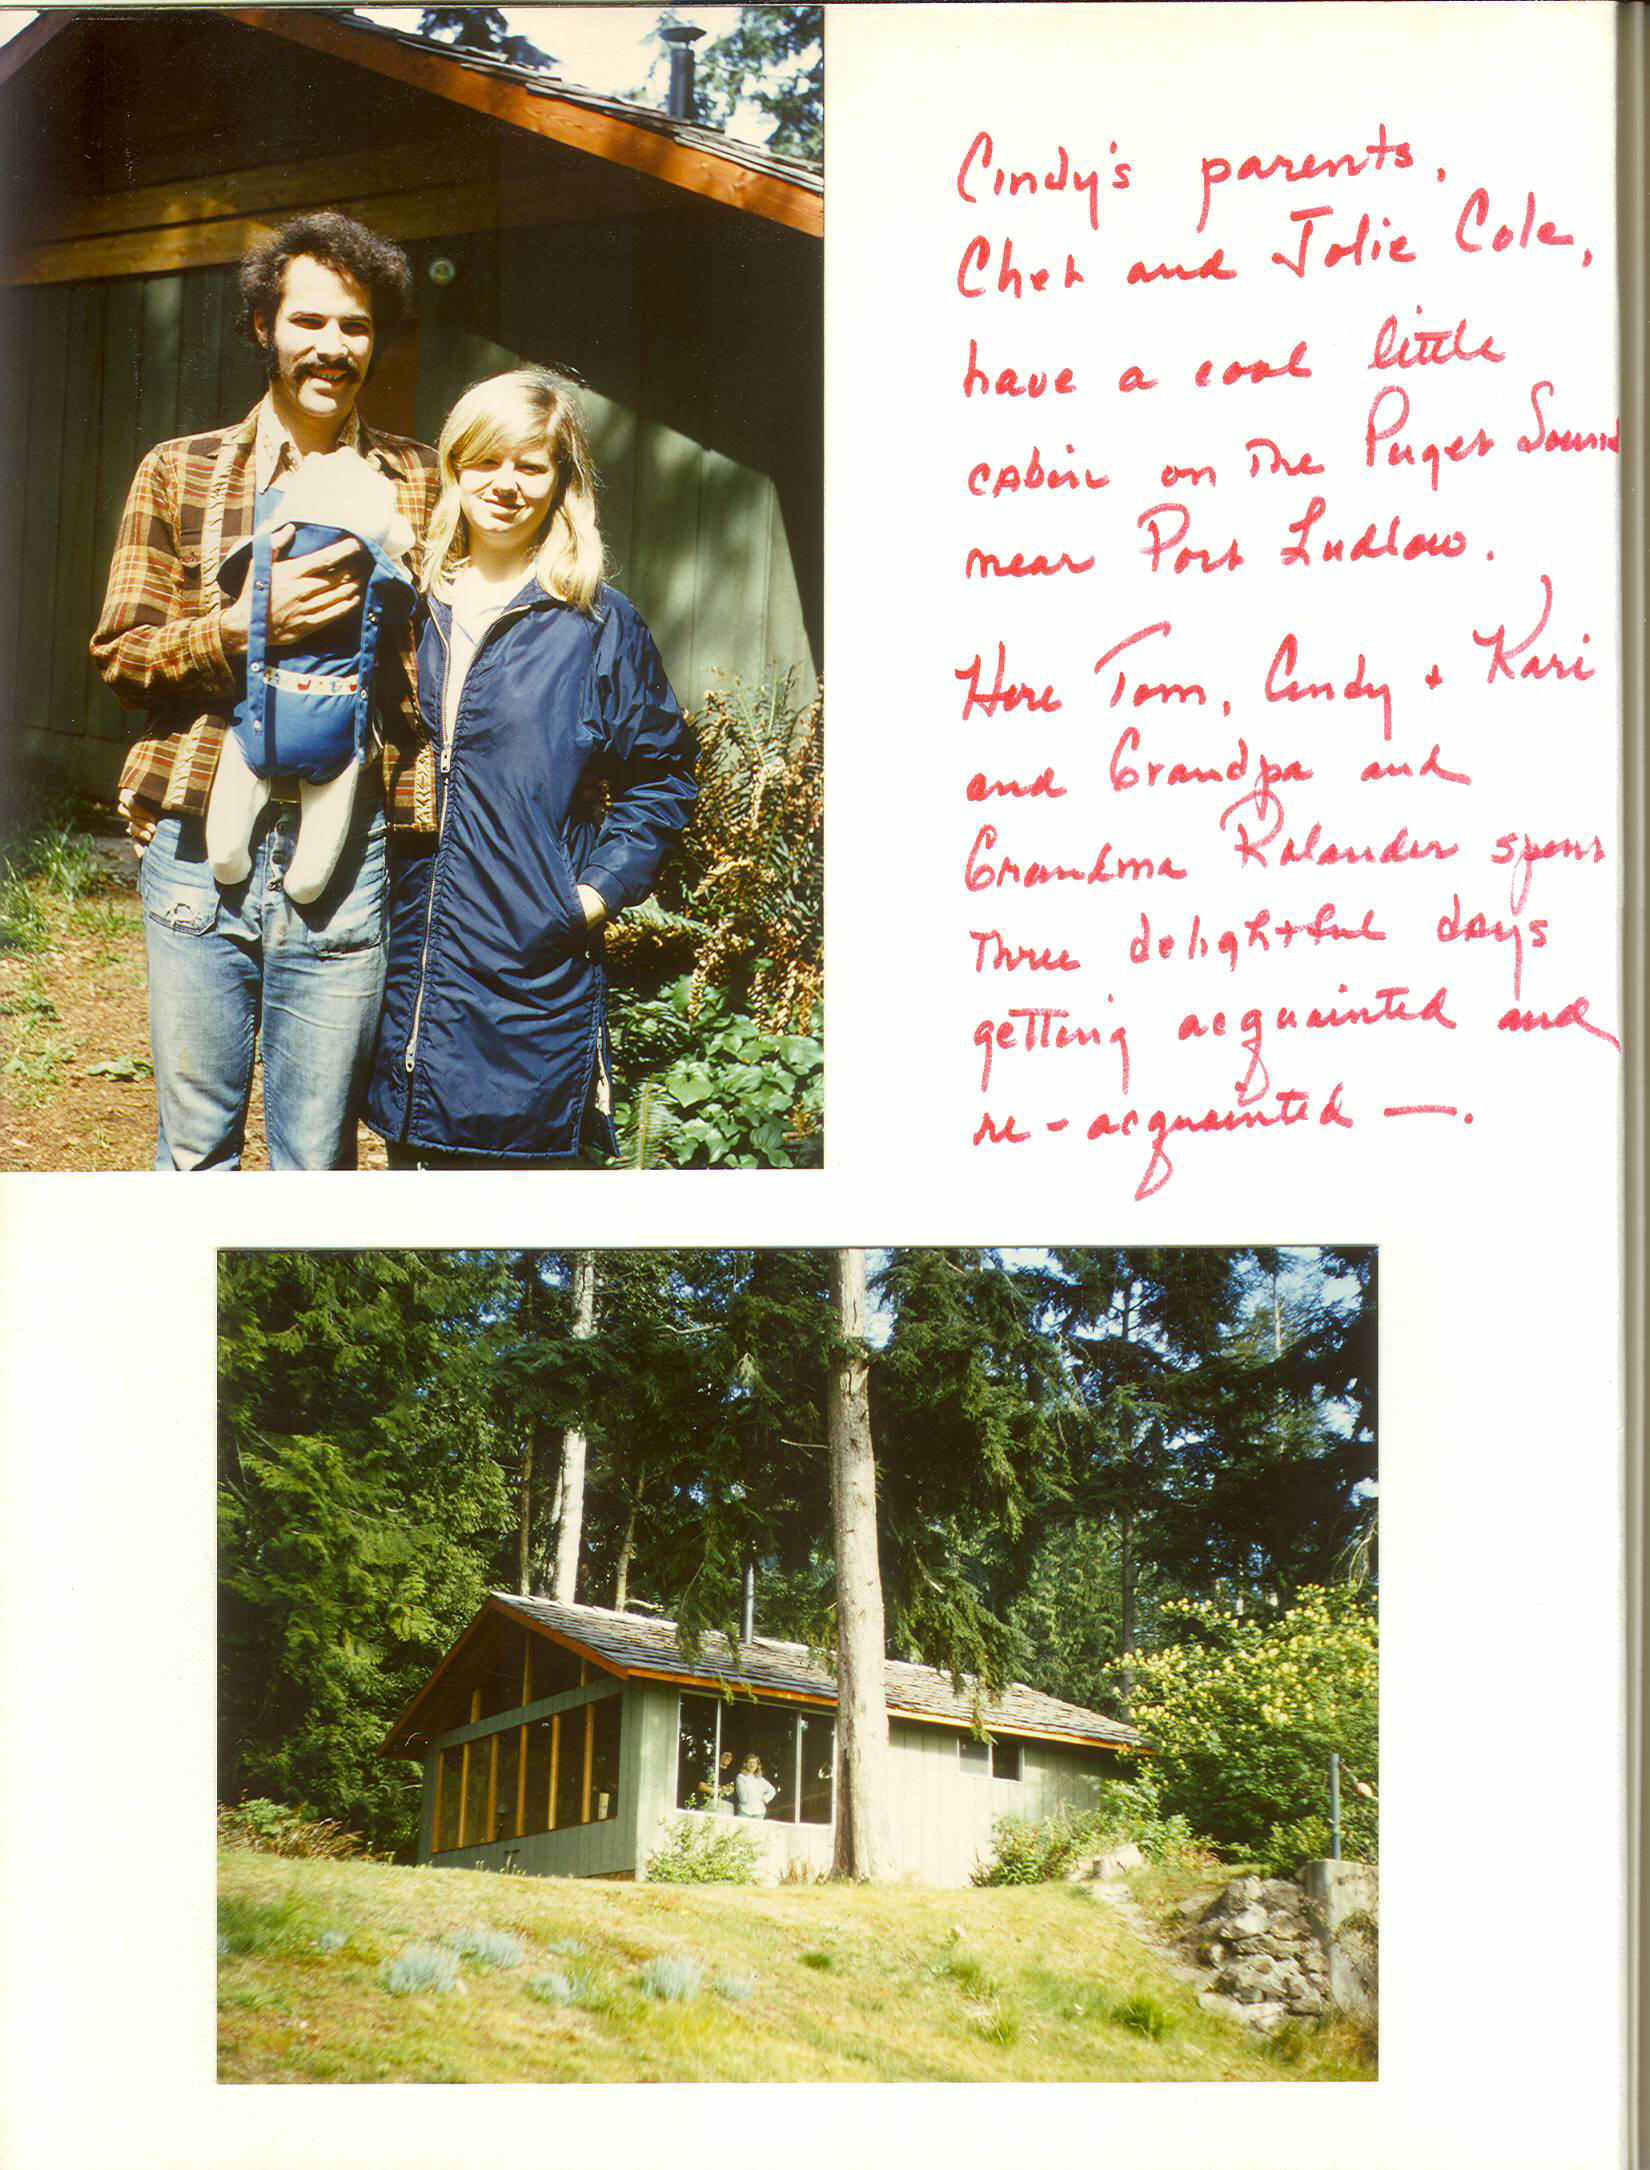 Cindy's parents,
Chet and Jolie Cole,
have a cool little
cabin on the Puget Sound
near Port Ludlow.
Here Tom, Cindy & Kari
and Grandpa and
Grandma Rolander spent
three delightful days
getting acquainted and
re-acquainted —.